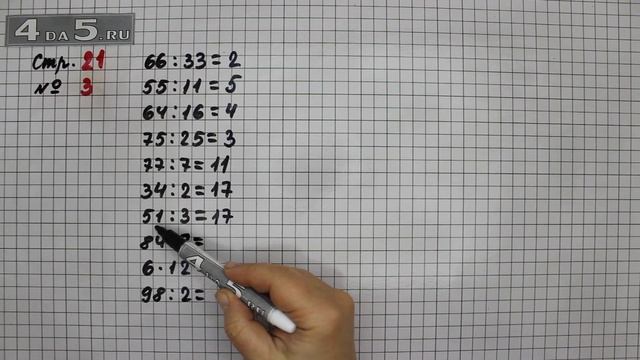 4 DA 5.RU
Стр. 21
№ 3
66 : 33 = 2
55 : 11 = 5
64 : 16 = 4
75 : 25 = 3
77 : 7 = 11
34 : 2 = 17
51 : 3 = 17
84 =
6 · 12
98 : 2 =
4 DA 5.RU